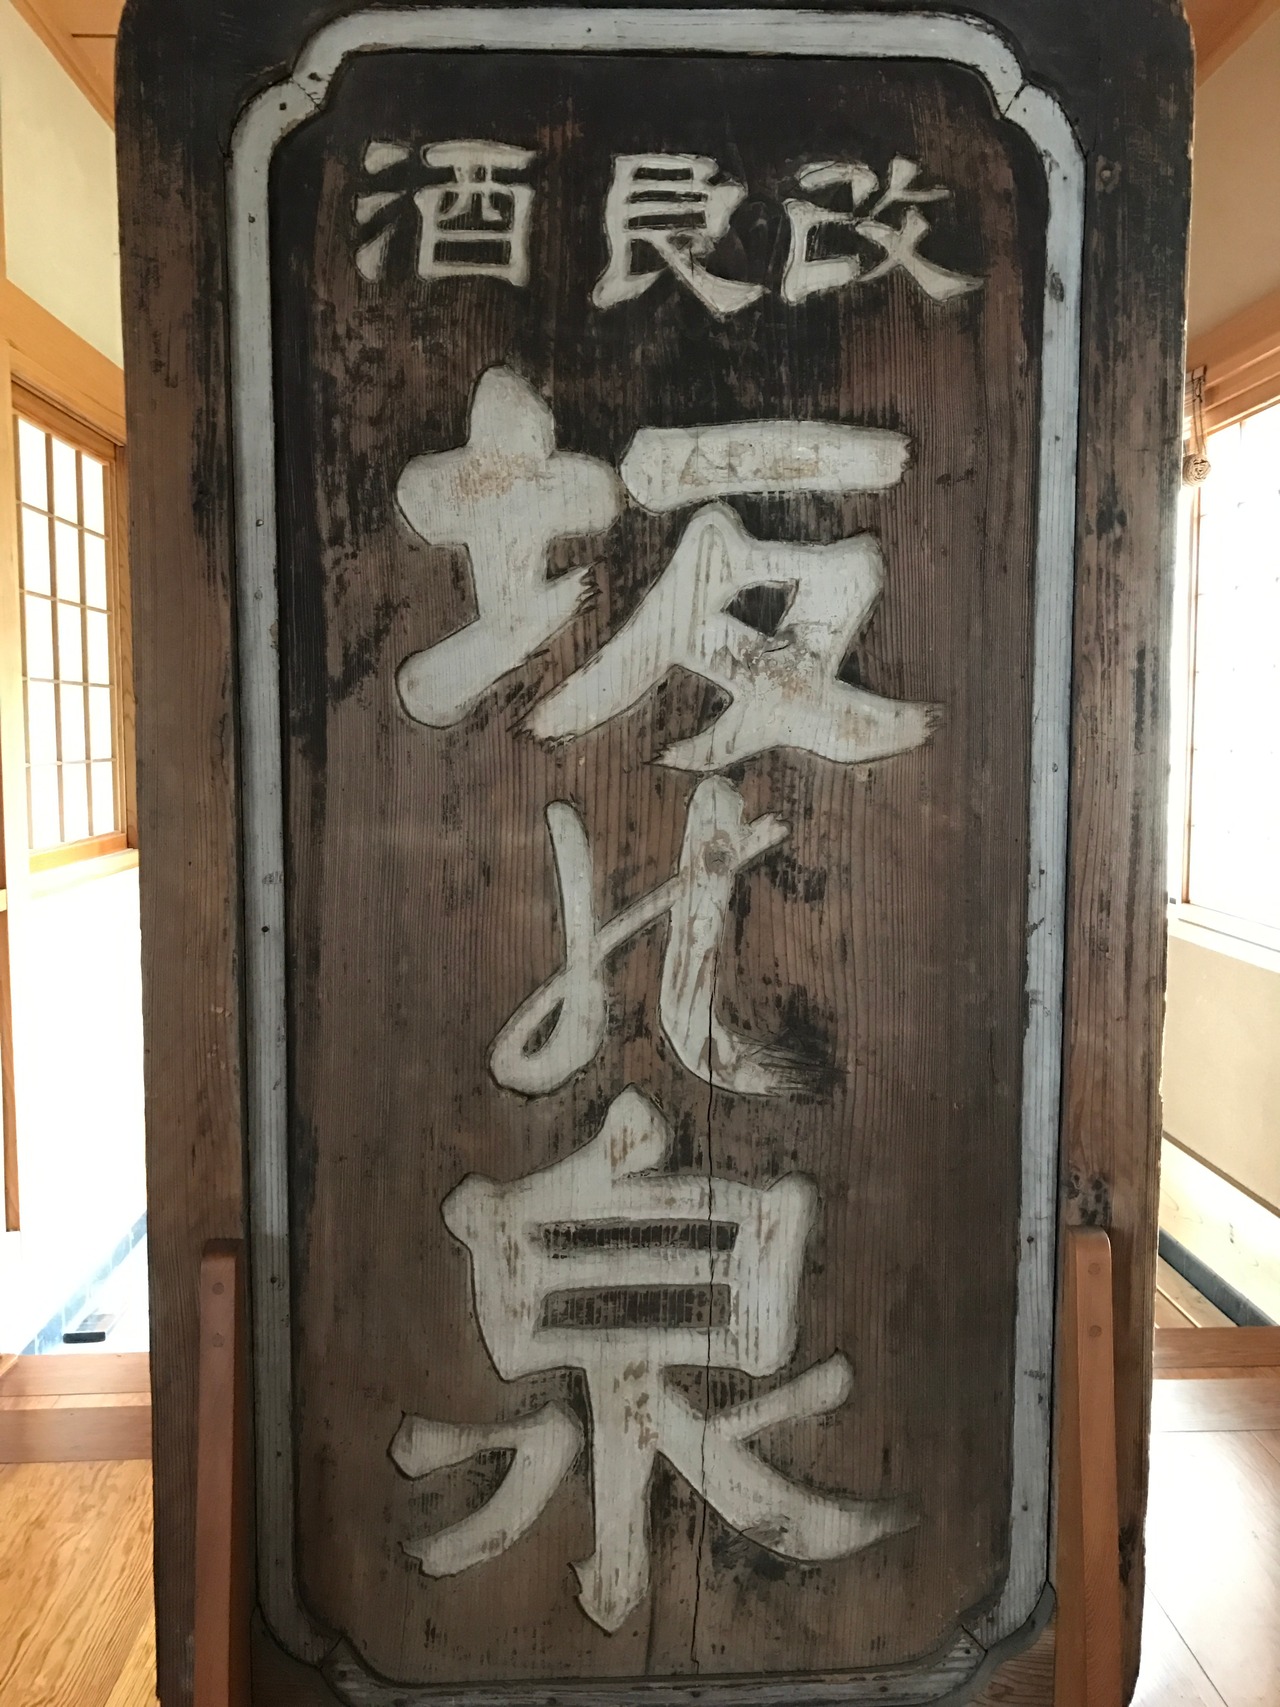 改良酒
坂北泉